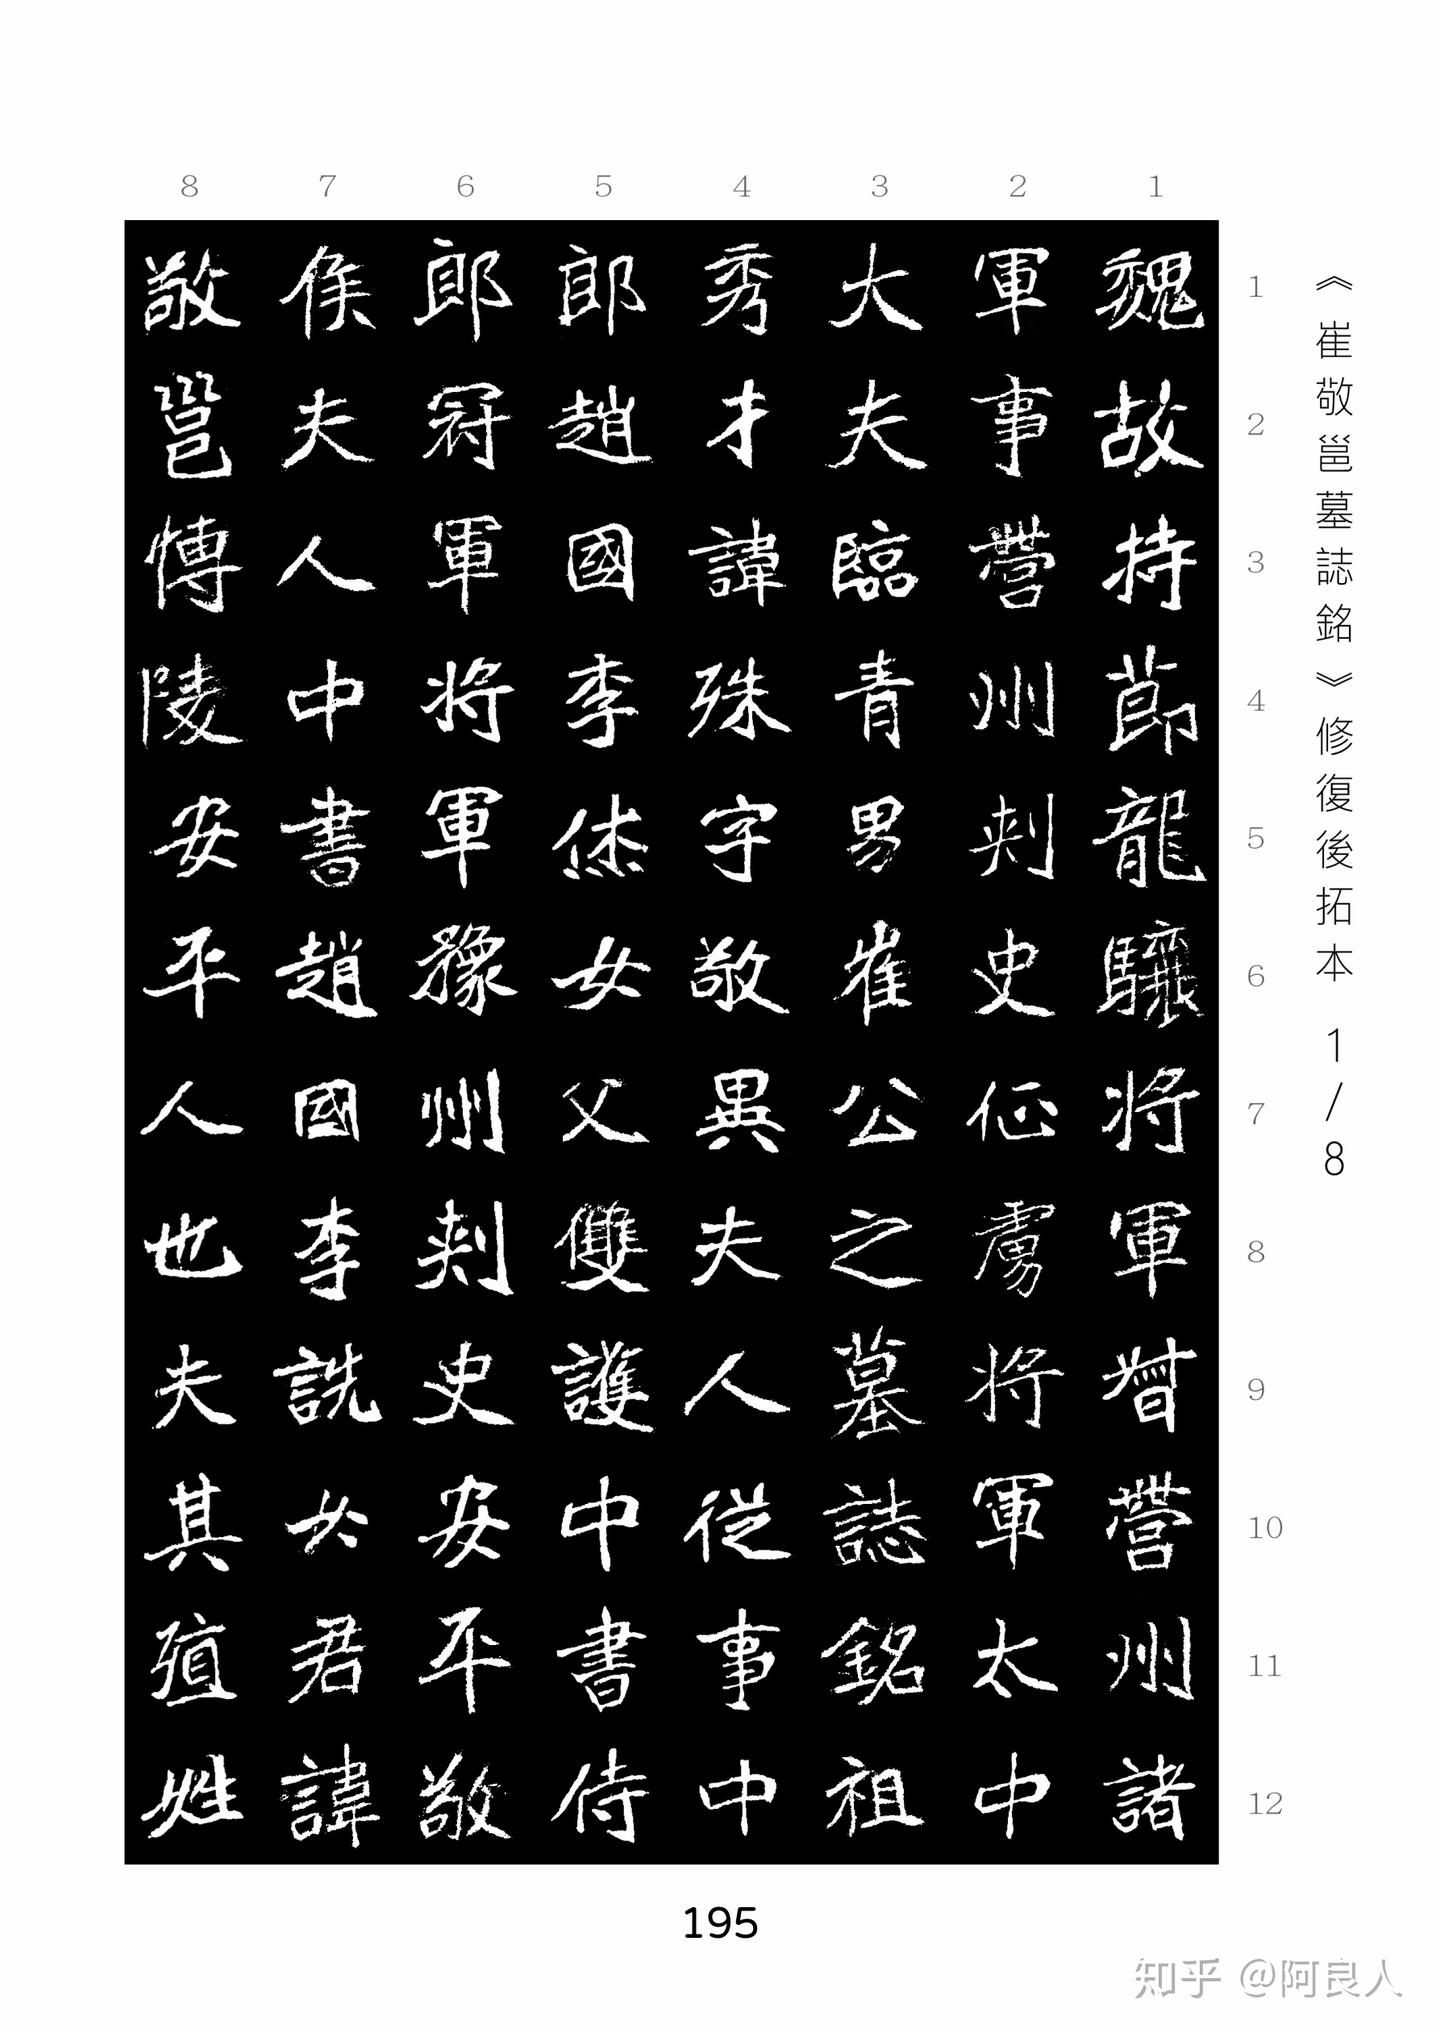 《崔敬邕墓誌銘》修復後拓本 1/8
8 7 6 5 4 3 2 1
魏故持節龍驤將軍督營州諸
軍事營州刺史征虜將軍太中
大夫臨青男崔公之墓誌銘祖
秀才諱殊字敬異夫人從事中
郎趙國李烋女父雙護中書侍
郎冠軍將軍豫州刺史安平敬
侯夫人中書趙國李詵女君諱
敬邕博陵安平人也夫其殖姓
1
2
3
4
5
6
7
8
9
10
11
12
195
知乎 @阿良人